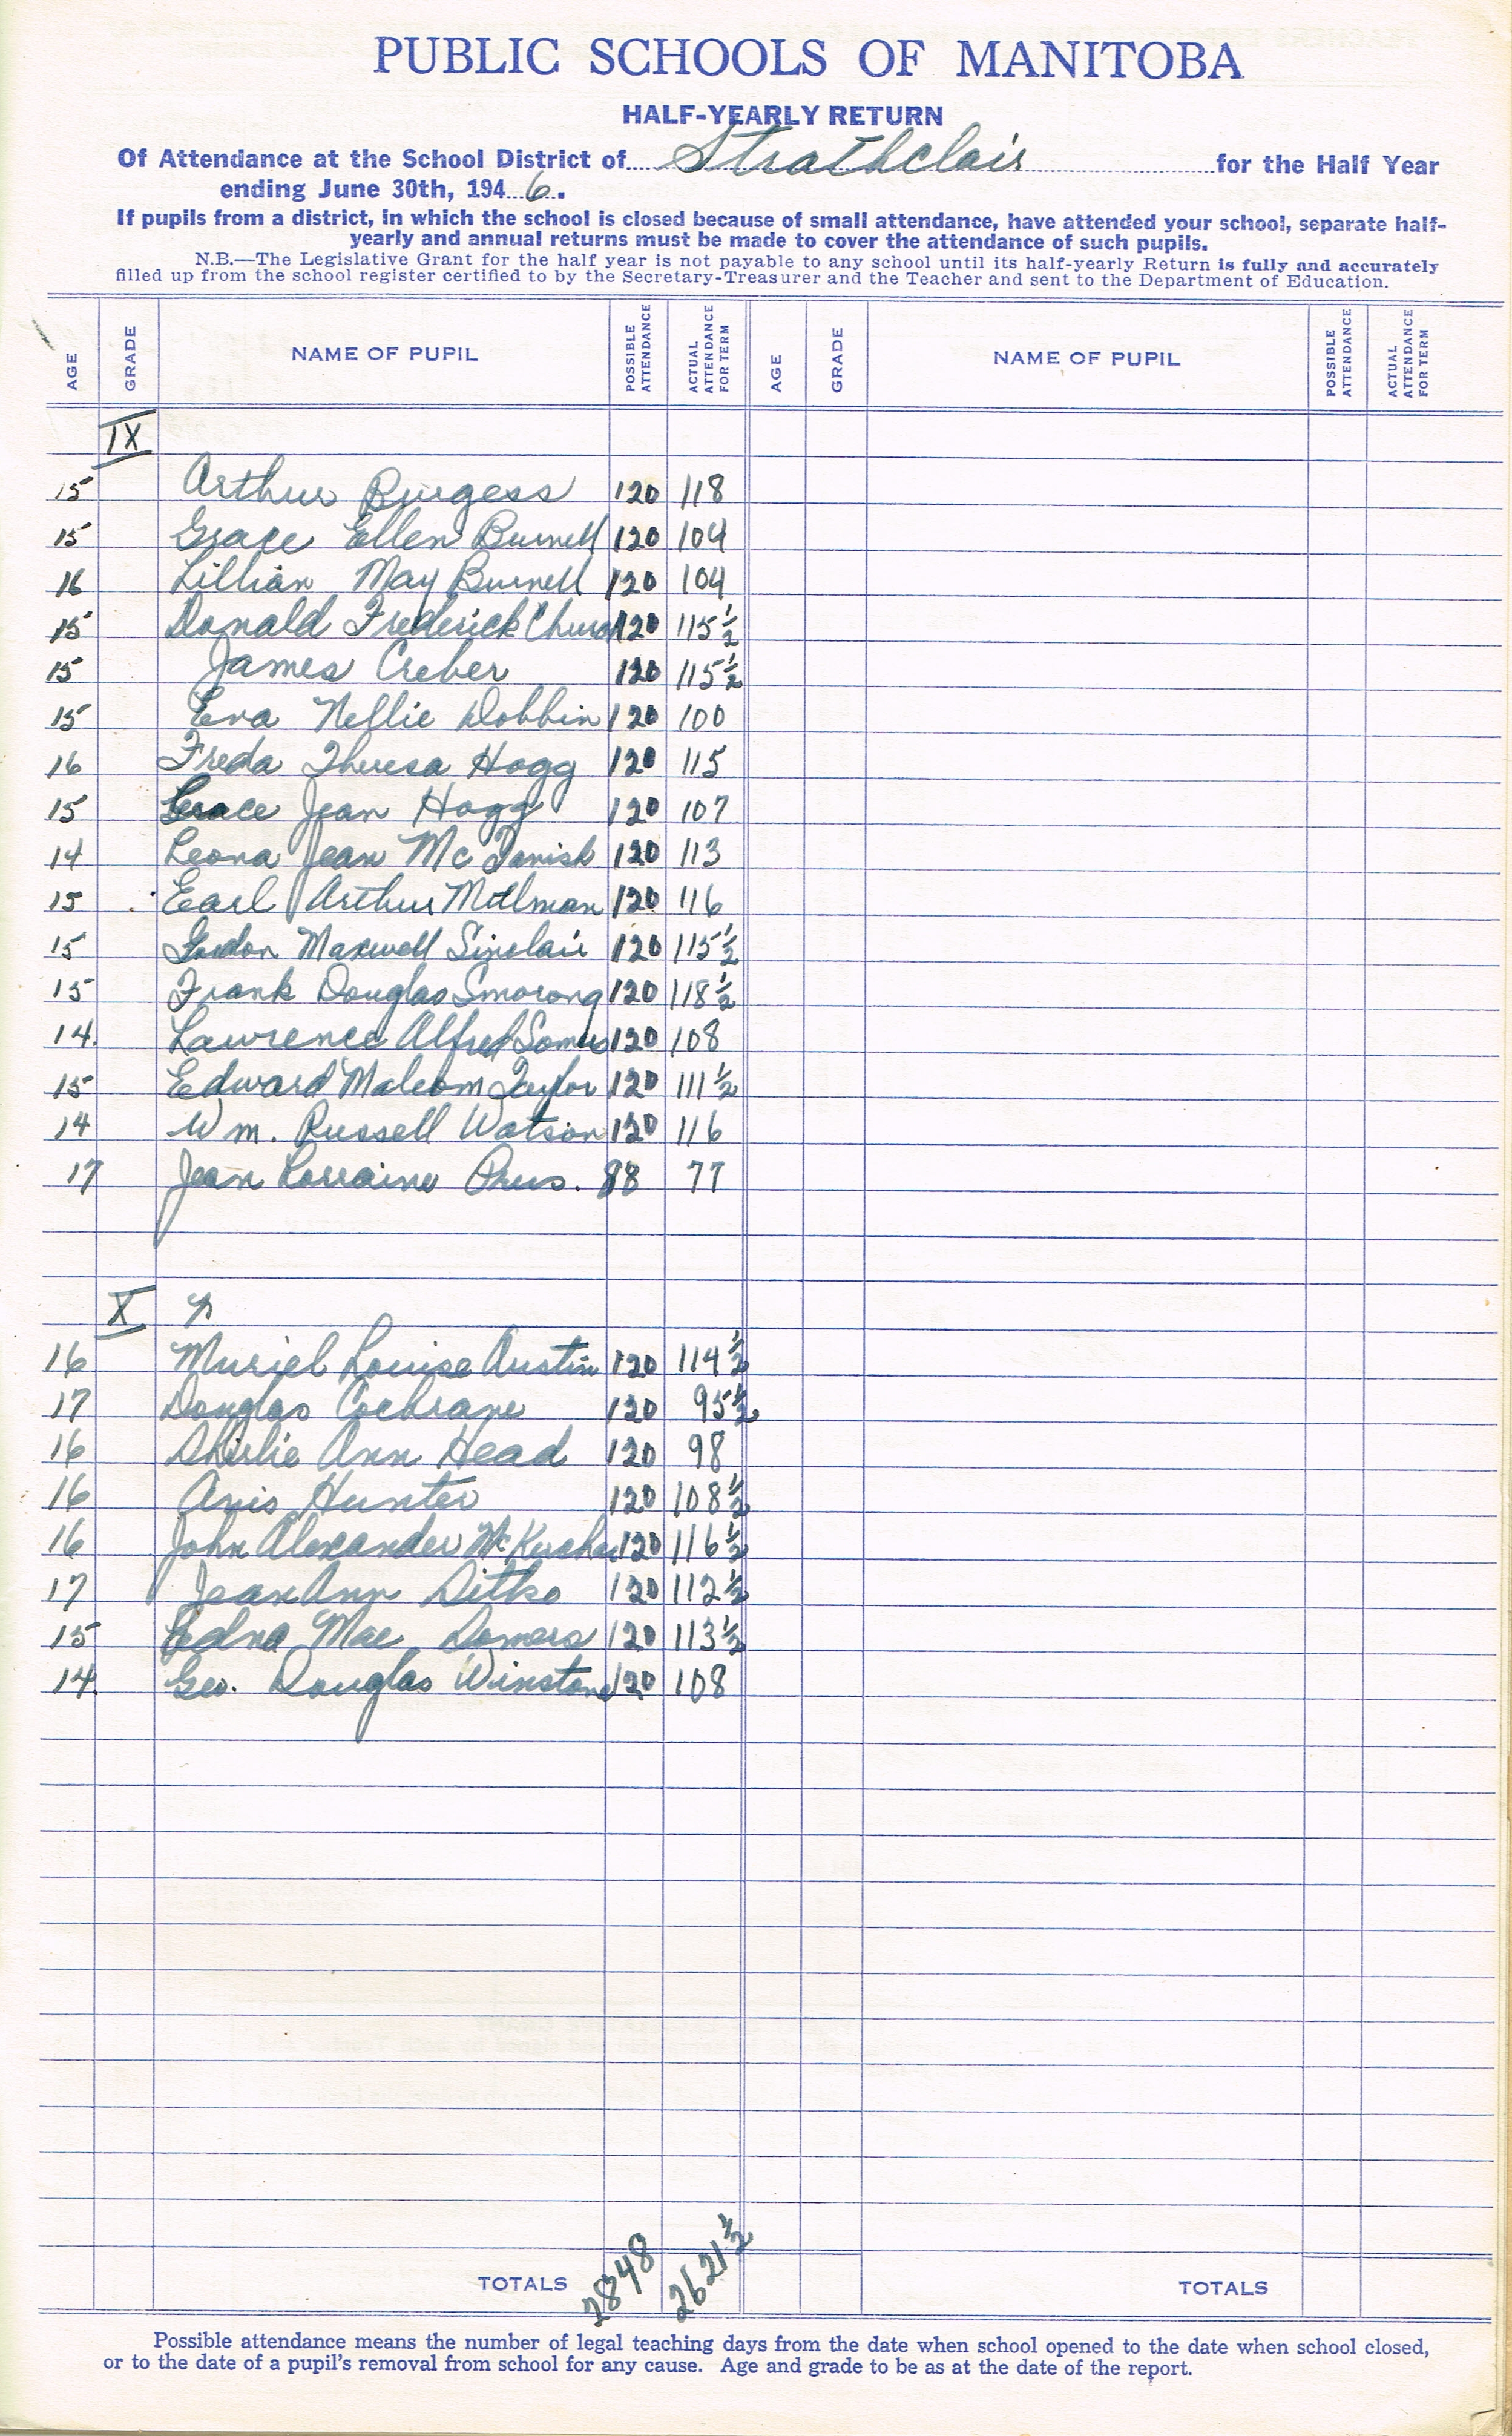 PUBLIC SCHOOLS OF MANITOBA
HALF-YEARLY RETURN
Of Attendance at the School District of Strathclair for the Half Year
ending June 30th, 1946.
If pupils from a district, in which the school is closed because of small attendance, have attended your school, separate half-
yearly and annual returns must be made to cover the attendance of such pupils.
N.B.—The Legislative Grant for the half year is not payable to any school until its half-yearly Return is fully and accurately
filled up from the school register certified to by the Secretary-Treasurer and the Teacher and sent to the Department of Education.
AGE GRADE NAME OF PUPIL POSSIBLE ATTENDANCE ACTUAL ATTENDANCE FOR TERM AGE GRADE NAME OF PUPIL POSSIBLE ATTENDANCE ACTUAL ATTENDANCE FOR TERM
IX
15 Arthur Burgess 120 118
15 Grace Ellen Burnell 120 104
16 Lillian May Burnell 120 104
15 Donald Frederick 120 115½
15 James Creber 120 115½
15 Eva Nellie Dobbin 120 100
16 Freda Theresa Hogg 120 115
15 Grace Jean Hogg 120 107
14 Leona Jean McTavish 120 113
15 Earl Arthur 120 116
15 Gordon Maxwell Sinclair 120 115½
15 Frank Douglas 120 118½
14. Lawrence Alfred 120 108
15 Edward Malcom Taylor 120 111½
14 Wm. Russell Watson 120 116
17 Jean Lorraine 88 77
X
16 Muriel Louise Austin 120 114½
17 Douglas Cochrane 120 95½
16 Shirlie Ann Head 120 98
16 Avis Hunter 120 108½
16 John Alexander 120 116½
17 Jean Ann Ditko 120 112½
15 Edna Mae 120 113½
14. Geo. Douglas Winstone 120 108
TOTALS 2848 2621½ TOTALS
Possible attendance means the number of legal teaching days from the date when school opened to the date when school closed,
or to the date of a pupil's removal from school for any cause. Age and grade to be as at the date of the report.